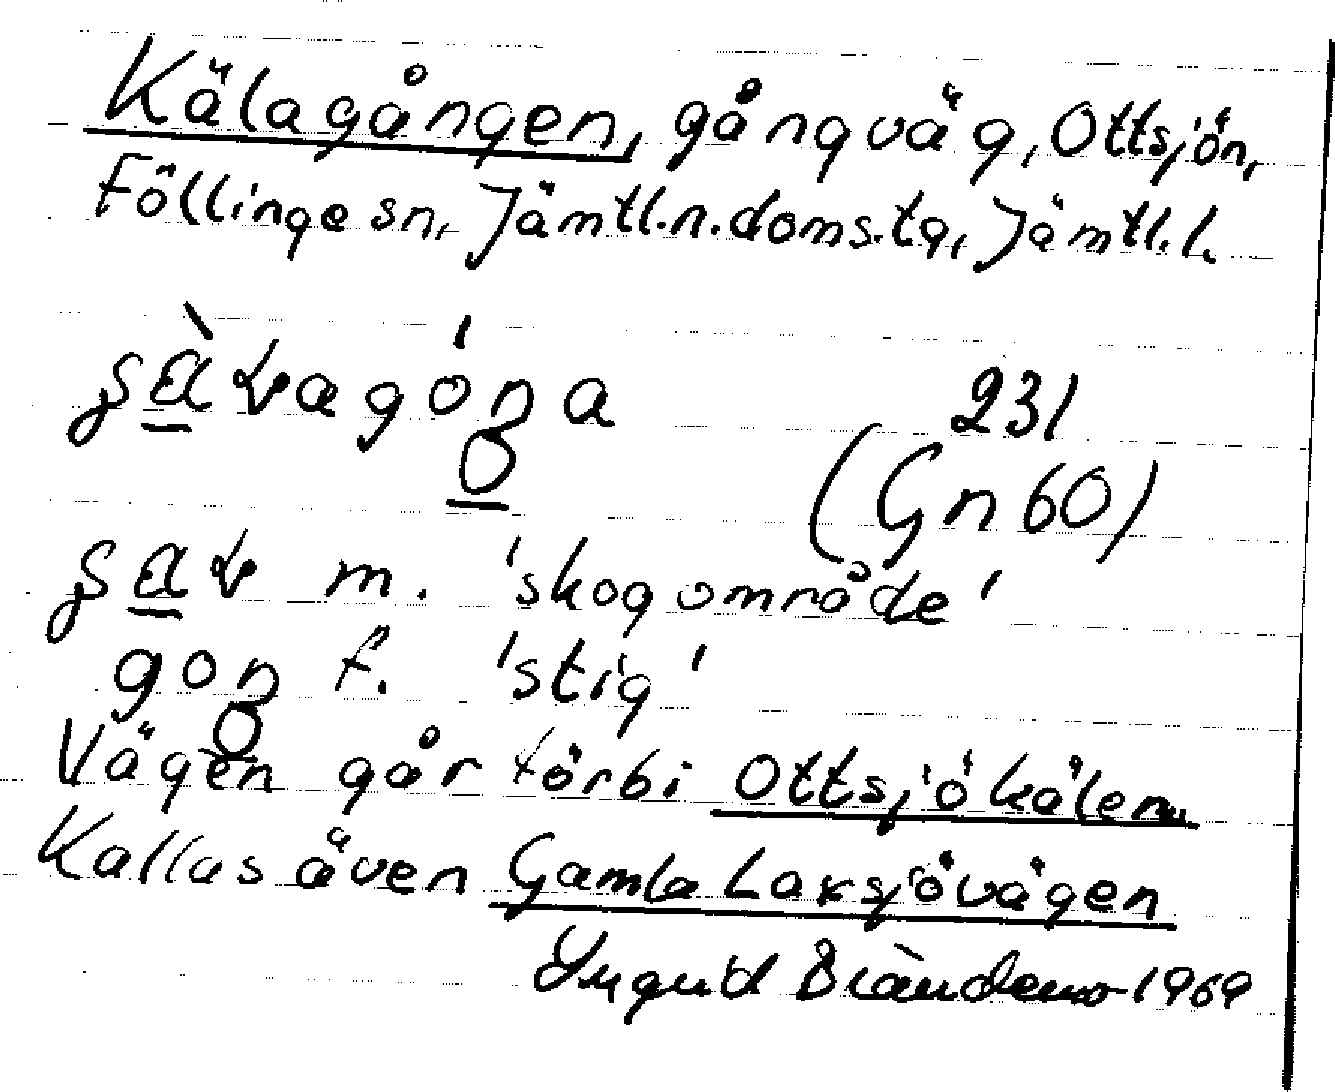 Kälagången, gångväg, Ottsjön,
Föllinge sn, Jämtl.n.doms.tg, Jämtl.l.
231
(Gn 60)
m. 'skogområde'
f. 'stig'
Vägen går förbi Ottsjökälen.
Kallas även Gamla Laxsjövägen
1969